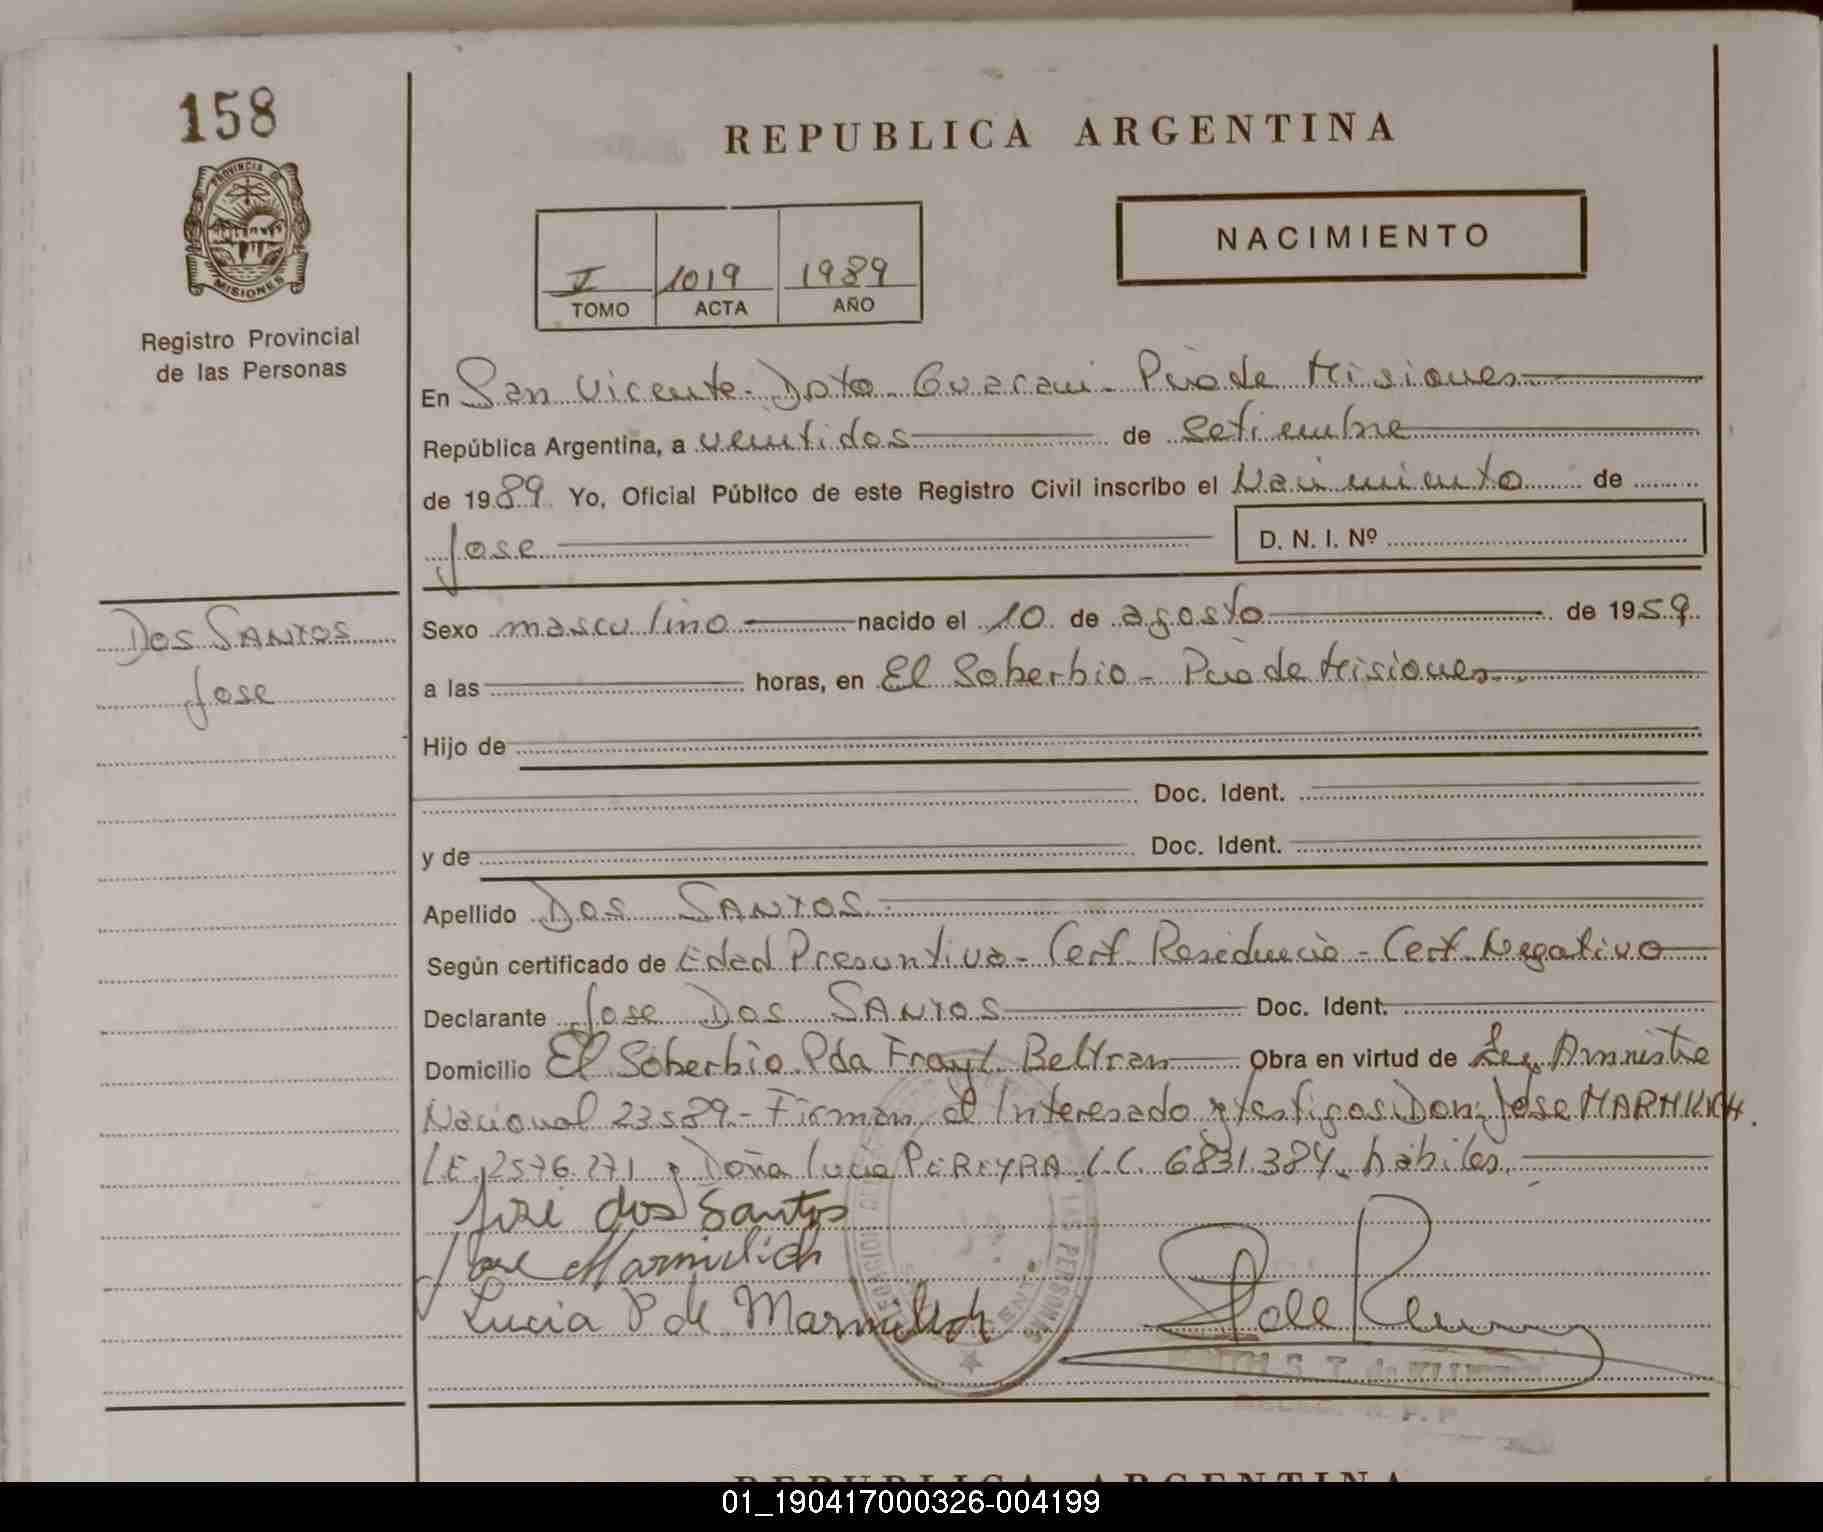 158
PROVINCIA DE
MISIONES
Registro Provincial
de las Personas
REPUBLICA ARGENTINA
NACIMIENTO
I 1019 1989
TOMO ACTA AÑO
En San Vicente - Dpto. Guarani - Pcia de Misiones
República Argentina, a veintidos de Setiembre
de 1989. Yo, Oficial Público de este Registro Civil inscribo el Nacimiento de
Jose
D. N. I. Nº
Dos SANTOS
Jose
Sexo masculino nacido el 10 de agosto de 1959.
a las horas, en El Soberbio - Pcia de Misiones
Hijo de
Doc. Ident.
y de Doc. Ident.
Apellido Dos SANTOS
Según certificado de Edad Presuntiva - Cert. Residencia - Cert. Negativo
Declarante Jose Dos SANTOS Doc. Ident.
Domicilio El Soberbio Pda Fray L. Beltran Obra en virtud de Ley Amnistia
Nacional 23589 - Firman el Interesado y testigos: Don: Jose
L.E. 2576.271 y Doña Lucia PEREYRA L.C. 6831.384. habiles.
José dos Santos
Jose Marmilich
Lucia P de Marmilich
LAS PERSONAS
01_190417000326-004199